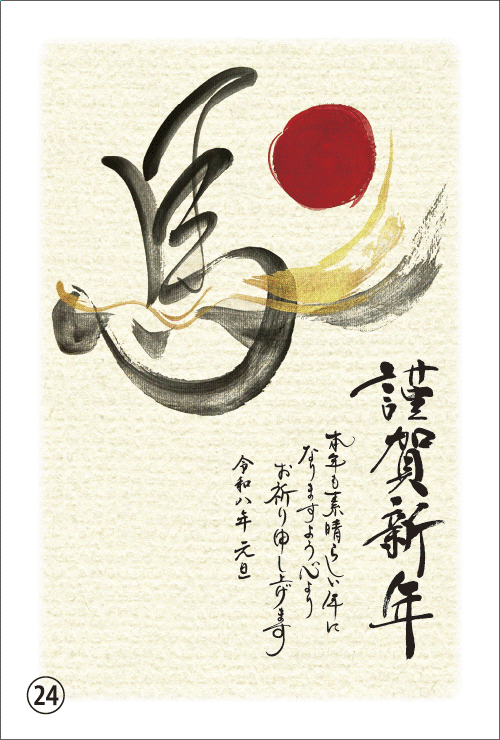 馬
謹賀新年
本年も素晴らしい年に
なりますよう心より
お祈り申し上げます
令和八年 元旦
24